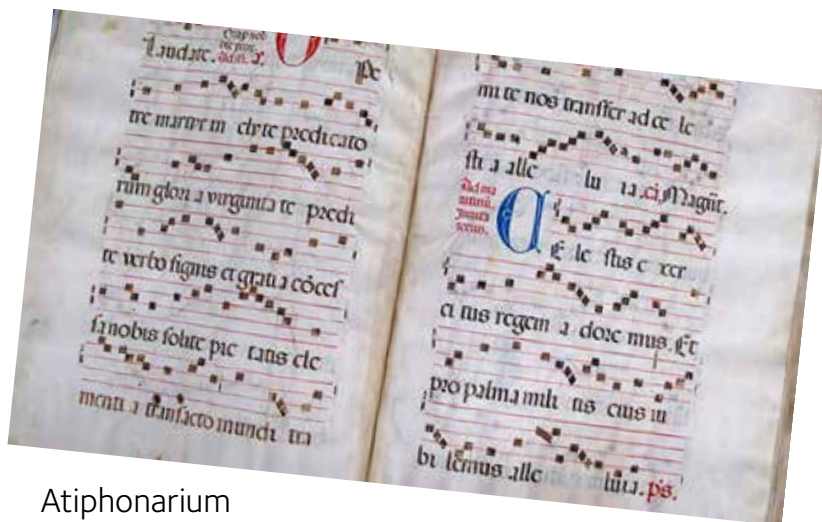 Laudate.
Pe
tre martir in clite predicato
rum glori a virgunta te predi
te verbo signis et grati a cōces
sa nobis solite pie tatis cle
menti a transacto mundi tri
mi te nos transfer ad ce le
sti a alle lu ia. Magnt.
C E le stus e xer
ci tus regem a dore mus. Et
pro palma mili tis cuius iu
bi lemus alle luia. ps.
Atiphonarium